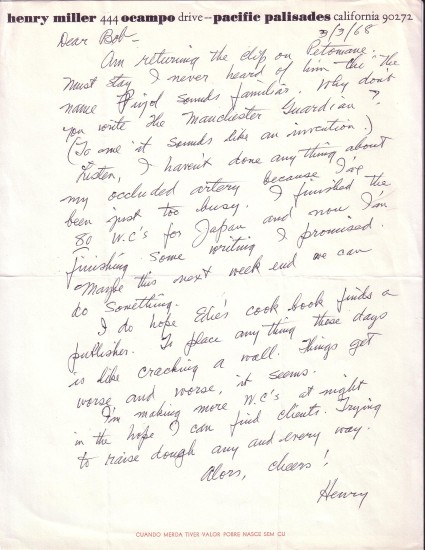 henry miller 444 ocampo drive – pacific palisades california 90272
3/3/68
Dear Bob –
Am returning the clip on Petomane.
Must say I never heard of him – tho' the
name Pujol sounds familiar. Why don't
you write the Manchester Guardian?
(To me it sounds like an invention.)
Listen, I haven't done anything about
my occluded artery because I've
been just too busy. I finished the
80 W.C's for Japan and now I'm
finishing some writing I promised.
Maybe this next week end we can
do something.
I do hope Edie's cook book finds a
publisher. To place anything these days
is like cracking a wall. Things get
worse and worse, it seems.
I'm making more W.C's at night
in the hope I can find clients. Trying
to raise dough any and every way.
Alors, cheers!
Henry
CUANDO MERDA TIVER VALOR POBRE NASCE SEM CU